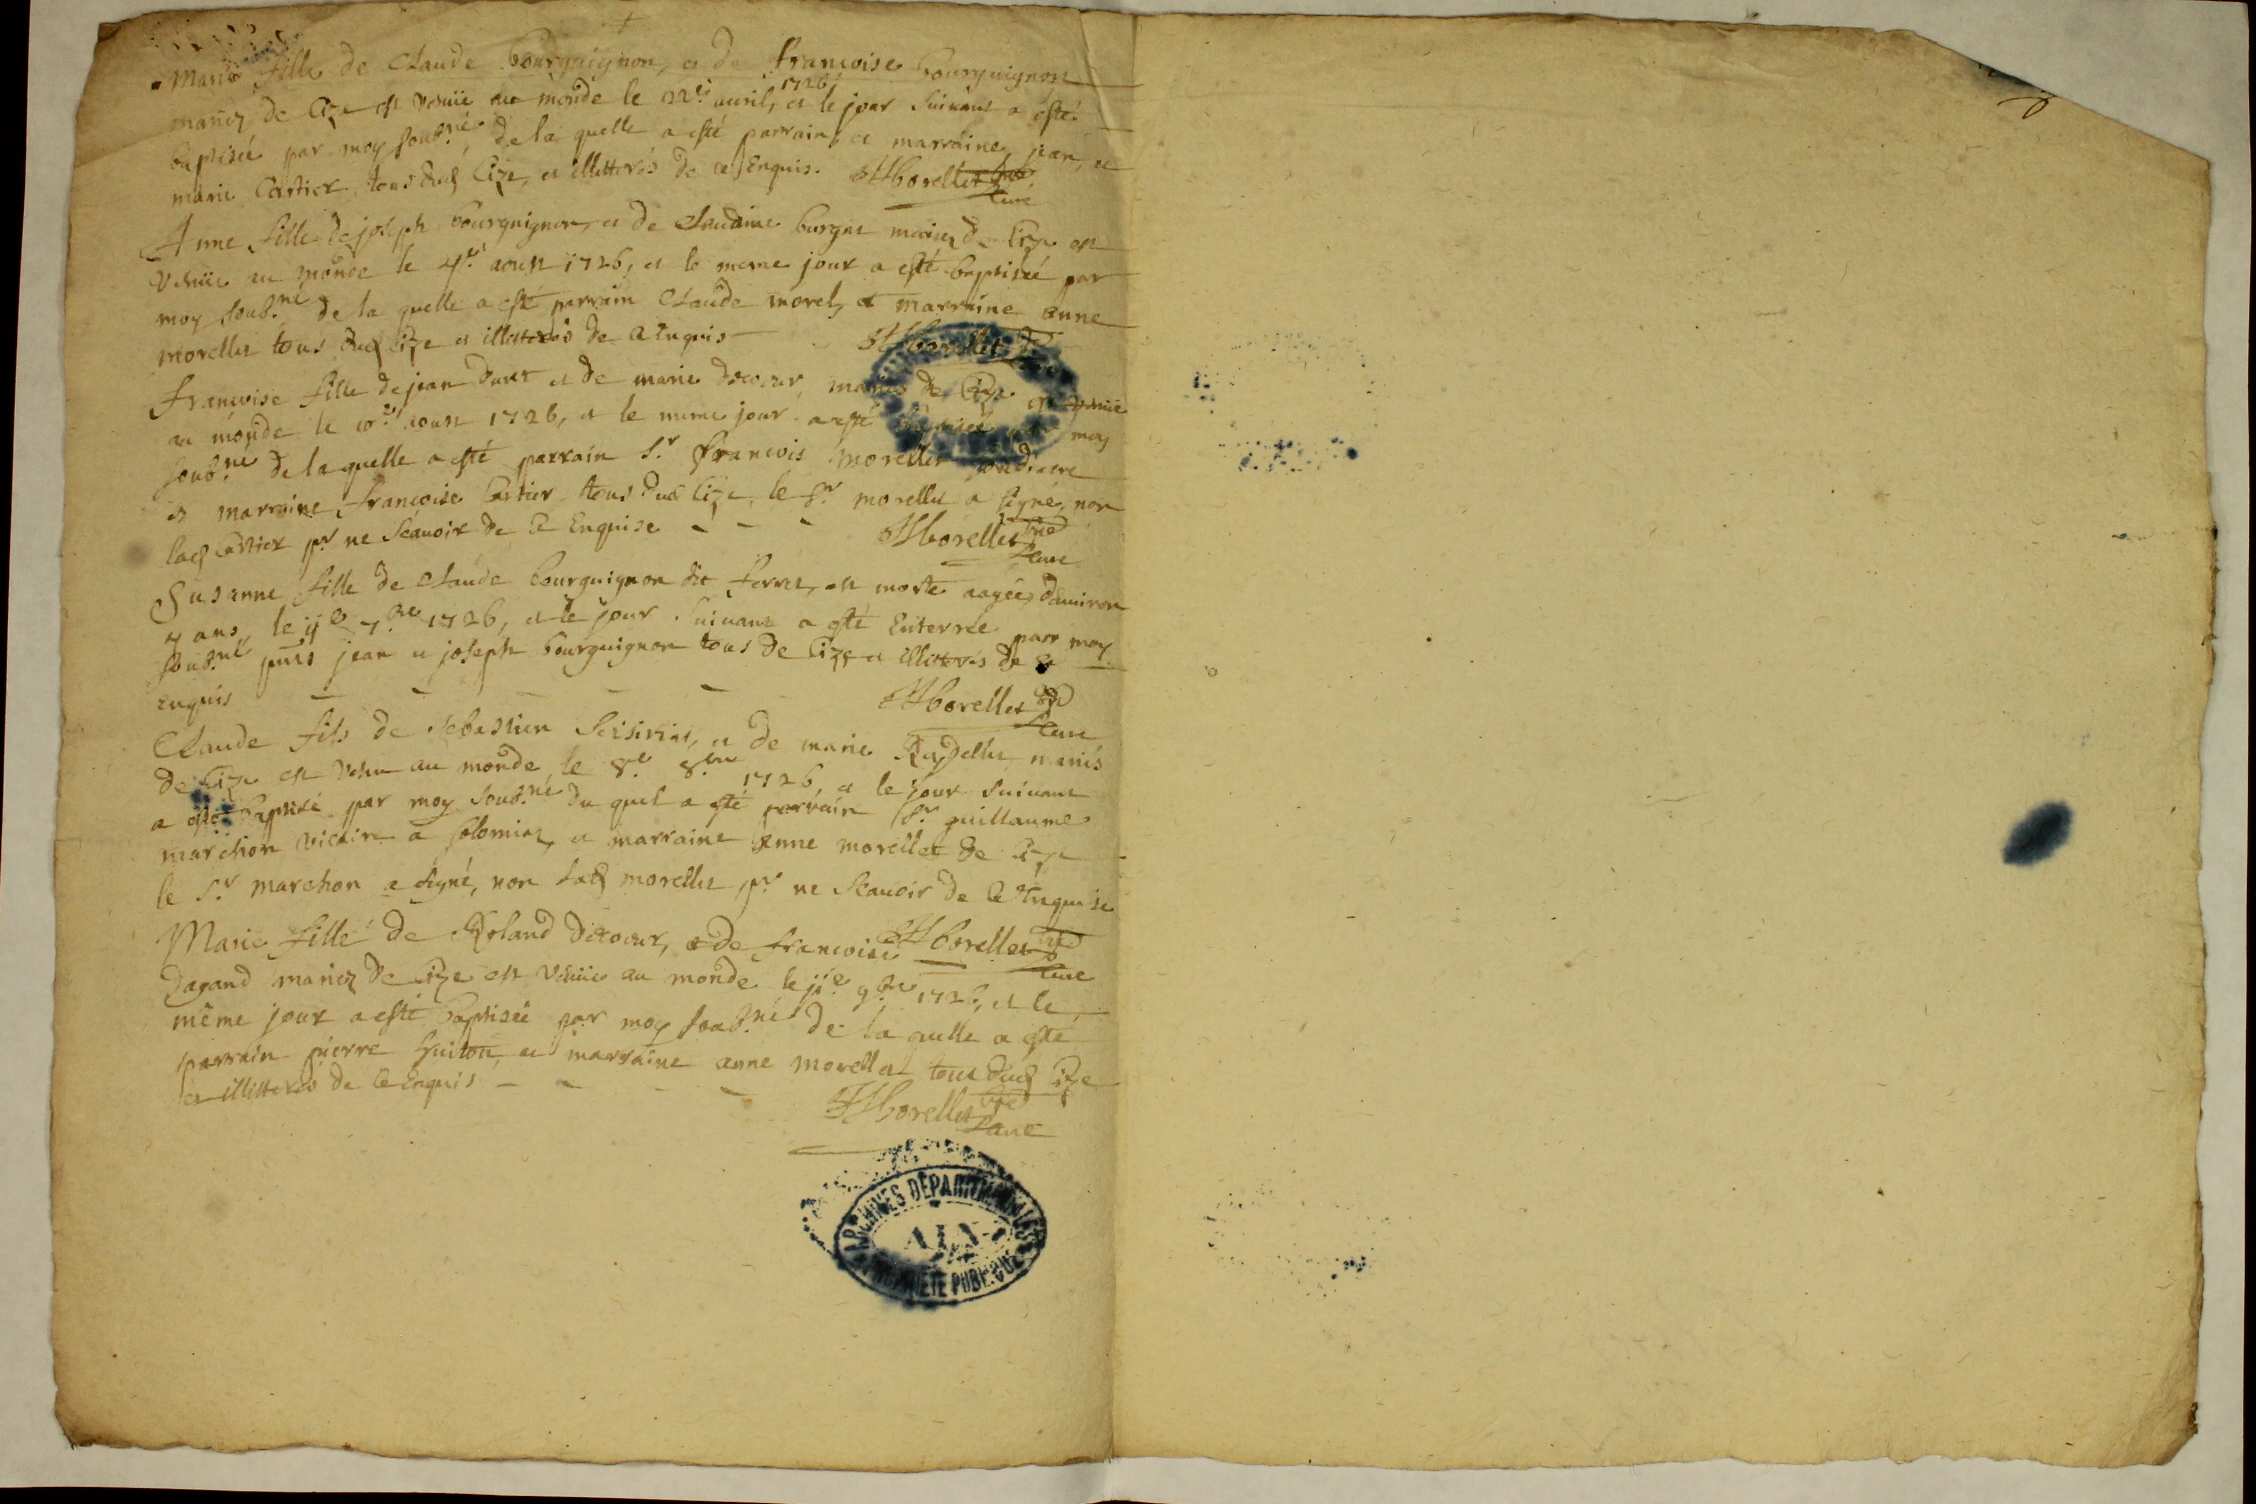 Marie fille de Claude bourguignon, et de francoise bourguignon
mariez de Cize est venüe au monde le 22e avril, 1726 et le jour suivant a esté
baptisée par moy soub.né, de la quelle a esté parrain, et marraine, jean, et
marie Cartier tous dud Cize, et illitterés de ce Enquis. Morellet curé
Anne fille de joseph bourguignon, et de Claudine mariez de Cize est
venüe au monde le aoust 1726, et le meme jour a esté baptisée par
moy soub.né de la quelle a esté parrain Claude morel, et marraine anne
morellet tous dud Cize et illitterés de ce Enquis Morellet
francoise fille de jean et de marie decoeur, mariés de Cize est venüe
au monde le 10e aoust 1726, et le meme jour a esté baptisée par moy
soub.né de la quelle a esté parrain Sr francois Morellet
et marraine francoise Cartier tous dud Cize, le Sr morellet a signé, non
lad Cartier pr ne Scavoir de ce Enquise - - - Morellet curé
Susanne fille de Claude bourguignon dit ferret, est morte aagée d'environ
ans, le 7bre 1726, et le jour suivant a esté Enterrée par moy
soub.né pnts jean et joseph bourguignon tous de Cize et illitterés de ce
enquis - - - - - Morellet curé
Claude fils de Sebastien et de marie mariés
de Cize est venu au monde, le 8e 8bre 1726, et le jour suivant
a esté baptisé par moy soub.né du quel a esté parrain Sr guillaume
marchon vicaire a Solomiat, et marraine anne morellet de Cize
le Sr marchon a signé, non lad morellet, pr ne Scavoir de ce Enquise
Morellet curé
Marie fille de Roland decoeur, et de francoise
dagand mariez de Cize est venüe au monde le 9bre 1726, et le
même jour a esté baptisée par moy soub.né de la quelle a esté
parrain pierre et marraine anne morellet tous dud Cize
et illitterés de ce Enquis - - -
Morellet curé
ARCHIVES DÉPARTEMENTALES
AIN
PROPRIÉTÉ PUBLIQUE